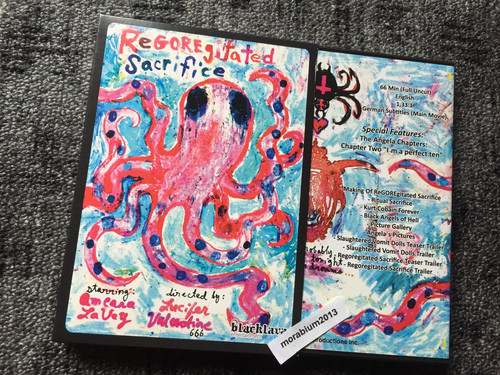 ReGOREgitated
Sacrifice
starring:
Ameara
LaVey
directed by:
Lucifer
Valentine
666
blacklava
66 Min (Full Uncut)
English
1,33:1
German Subtitles (Main Movie)
Special Features:
- The Angela Chapters:
Chapter Two "I'm a perfect ten"
Making Of ReGOREgitated Sacrifice
- Ritual Sacrifice
- Kurt Cobain Forever
- Black Angels of Hell
- Picture Gallery
- Angela's Pictures
- Slaughtered Vomit Dolls Teaser Trailer
- Slaughtered Vomit Dolls Trailer
- Regoregitated Sacrifice Teaser Trailer
- Regoregitated Sacrifice Trailer
tonight
morabium2013
roductions Inc.